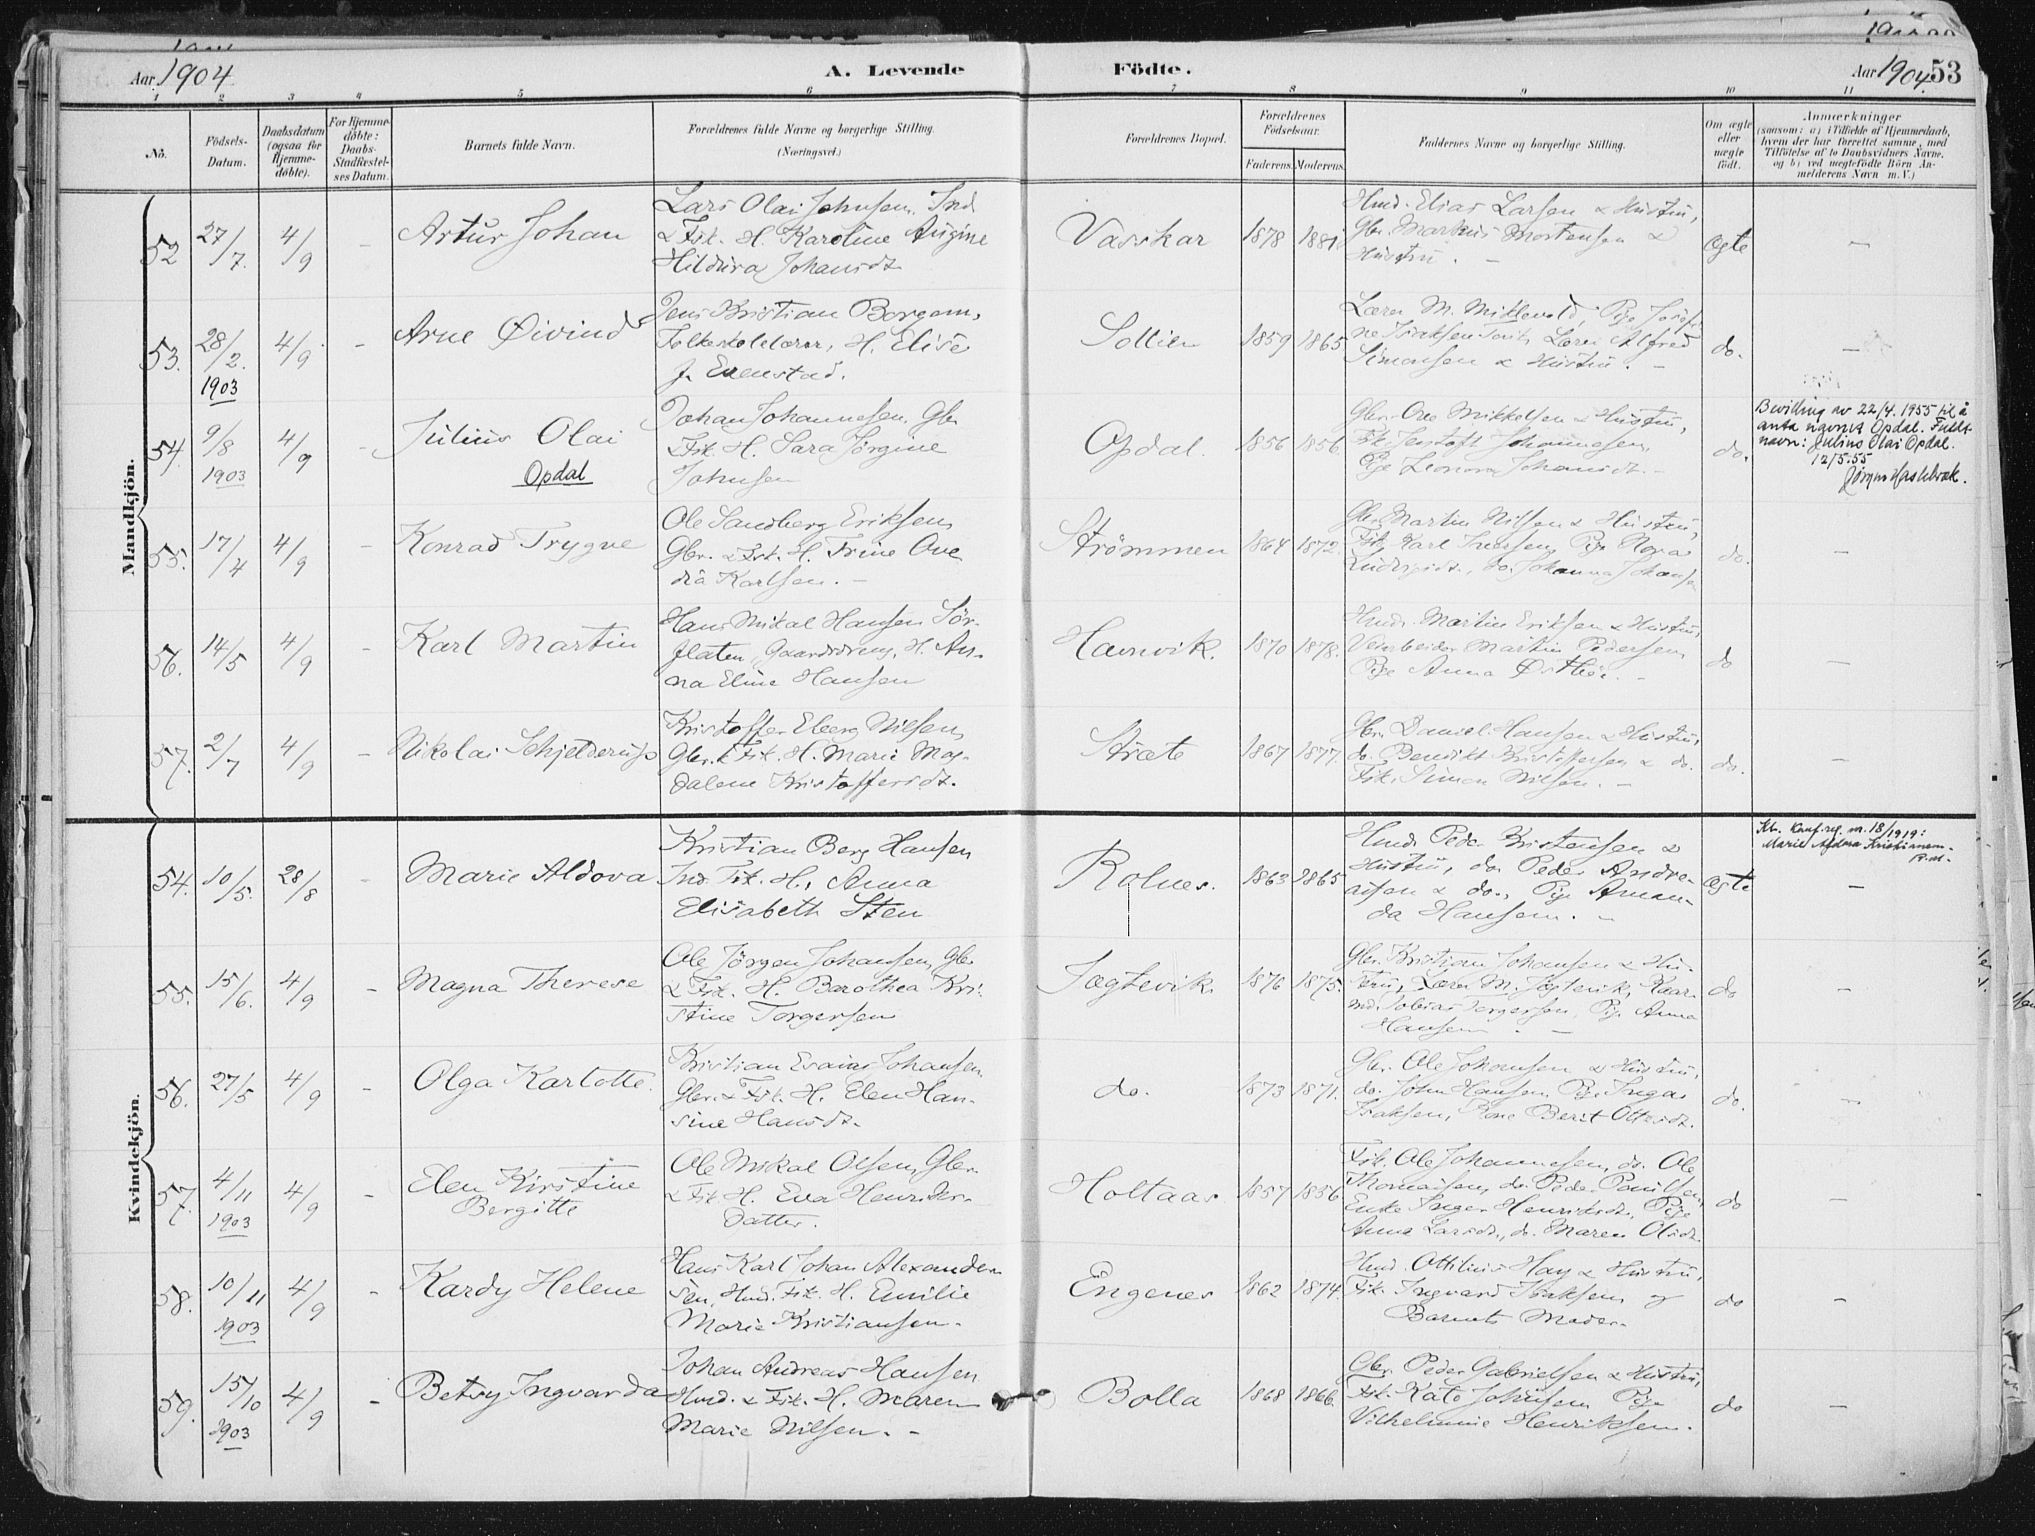 Aar 1904. A. Levende Födte. Aar 1904. 53
1 2 3 4 5 6 7 8 9 10 11
No. Födsels-Datum. Daabsdatum (ogsaa for Hjemme-döbte). For Hjemme-döbte: Daabs-Stadfæstel-ses Datum. Barnets fulde Navn. Forældrenes fulde Navne og borgerlige Stilling. (Næringsvei.) Forældrenes Bopæl. Forældrenes Födselsaar. Faderens. Moderens. Faddernes Navne og borgerlige Stilling. Om ægte eller uægte födt. Anmerkninger (saasom: a) i Tilfælde af Hjemmedaab, hvem der har forrettet samme, med Tilföielse af to Daabsvidners Navne, og b) ved uægtefödte Börn Anmelderens Navn m. V.)
Mandkjön.
52 27/7. 4/9 - Artur Johan
Lars Olai Johnsen, Ind.
& Fisk. H. Karoline Augine
Hildura Johansdt.
Vasskar 1878 1881.
Hmd. Elias Larsen & Hustru,
Gbr. Markus Mortensen &
Hustru. -
ægte -
53. 28/2. 1903 4/9 - Arne Øivind
Jens Kristian Borgem,
Folkeskolelærer, H. Elise
J. Evenstad.
Sollien 1859 1865
Lærer M. Miklevold, Pige
Lærer Alfred
Simonsen & Hustru. -
do. -
54. 9/8 1903 4/9 - Julius Olai
Opdal
Johan Johannesen, Gbr.
& Fisk. H. Sara Jörgine
Johnsen
Opdal. 1856 1856.
Gbr. Ove Mikkelsen & Hustru,
Fisk. Johannesen,
Pige Leonora Johansdt. -
do.
Bevilling av 22/4. 1955 til å
anta navnet Opdal. Fulde
navn: Julius Olai Opdal.
12/5.55
55. 17/4 4/9 - Konrad Trygve
Ole Sandberg Eriksen,
Gbr. & Fisk. H. Trine Ove
dia Karlsen. -
Strömmen 1864 1872.
Gbr. Martin Nilsen & Hustru,
Fisk. Karl Iversen, Pige Nora
Ludvigsdt., do. Johanna Johansen
do. -
56. 14/5 4/9 - Karl Martin
Hans Mikal Hansen Sör-
flaten, Gaardsdreng, H. An-
na Eline Hansen
Havnvik. 1870 1878.
Hmd. Martin Eriksen & Hustru,
Veiarbeider Martin Pedersen,
Pige Anna
do -
57. 2/7 4/9 - Nikolai Schjelderup
Kristoffer Eleerg Nilsen,
Gbr. & Fisk. H. Marie Mag-
dalene Kristoffersdt.
Stræte 1867 1877.
Gbr. Daniel Hansen & Hustru,
do. Benedikt Kristoffersen & do.
Fisk. Simon Nilsen. -
do. -
Kvindekjön.
54. 10/5. 28/8 - Marie Aldova
Kristian Berg Hansen
Ind. Fisk. H. Anna
Elisabeth Sten
Rolnes. 1863 1865
Hmd. Peder Kristensen &
Hustru, do. Peder Andre-
assen & do., Pige Aman-
da Hansen. -
ægte
Kb. Konf.reg. nr. 18/1919:
Marie Kristiansen.
-
55. 15/6. 4/9 - Magna Therese
Ole Jörgen Johansen, Gbr.
& Fisk. H. Barothea Kri-
stine Torgersen
Jægtevik 1876 1875.
Gbr. Kristian Johansen & Hu-
stru, Lærer M. Jægtevik,
Tobias Torgersen, Pige Anna
Hansen. -
do -
56. 27/5 4/9 - Olga Karlotte.
Kristian Esaias Johansen,
Gbr. & Fisk. H. Elen Han-
sine Hansdt.
do. 1873 1871.
Gbr. Ole Johansen & Hustru,
do. John Hansen, Pige Inga
Isaksen, Kone Berit Ottesdt.
do. -
57. 4/11 1903 4/9 - Elen Kirstine
Bergitte
Ole Mikal Olsen, Gbr.
& Fisk. H. Eva Henriks-
datter.
Holtaas 1857 1856.
Fisk. Ole Johannesen, do. Ole
Thomassen, do. Peder Paulsen,
Enke Inger Henriksdt., Pige
Anna Larsdt., do. Maren Olsdt.
do -
58. 10/11 1903 4/9 - Kardy Helene
Hans Karl Johan Alexander-
sen, Hmd. Fisk. H. Emilie
Marie Kristiansen.
Engenes 1862 1874.
Hmd. Ottilius Hay & Hustru,
Fisk. Ingvard Isaksen og
Barnets Moder.
do -
59. 15/10 1903 4/9 - Betsy Ingvarda
Johan Andreas Hansen
Hmd. & Fisk. H. Maren
Marie Nilsen. -
Bolla 1868 1866.
Gbr. Peder Gabrielsen & Hustru,
Fisk. Kato Johnsen, Pige
Vilhelmine Henriksen.
do -